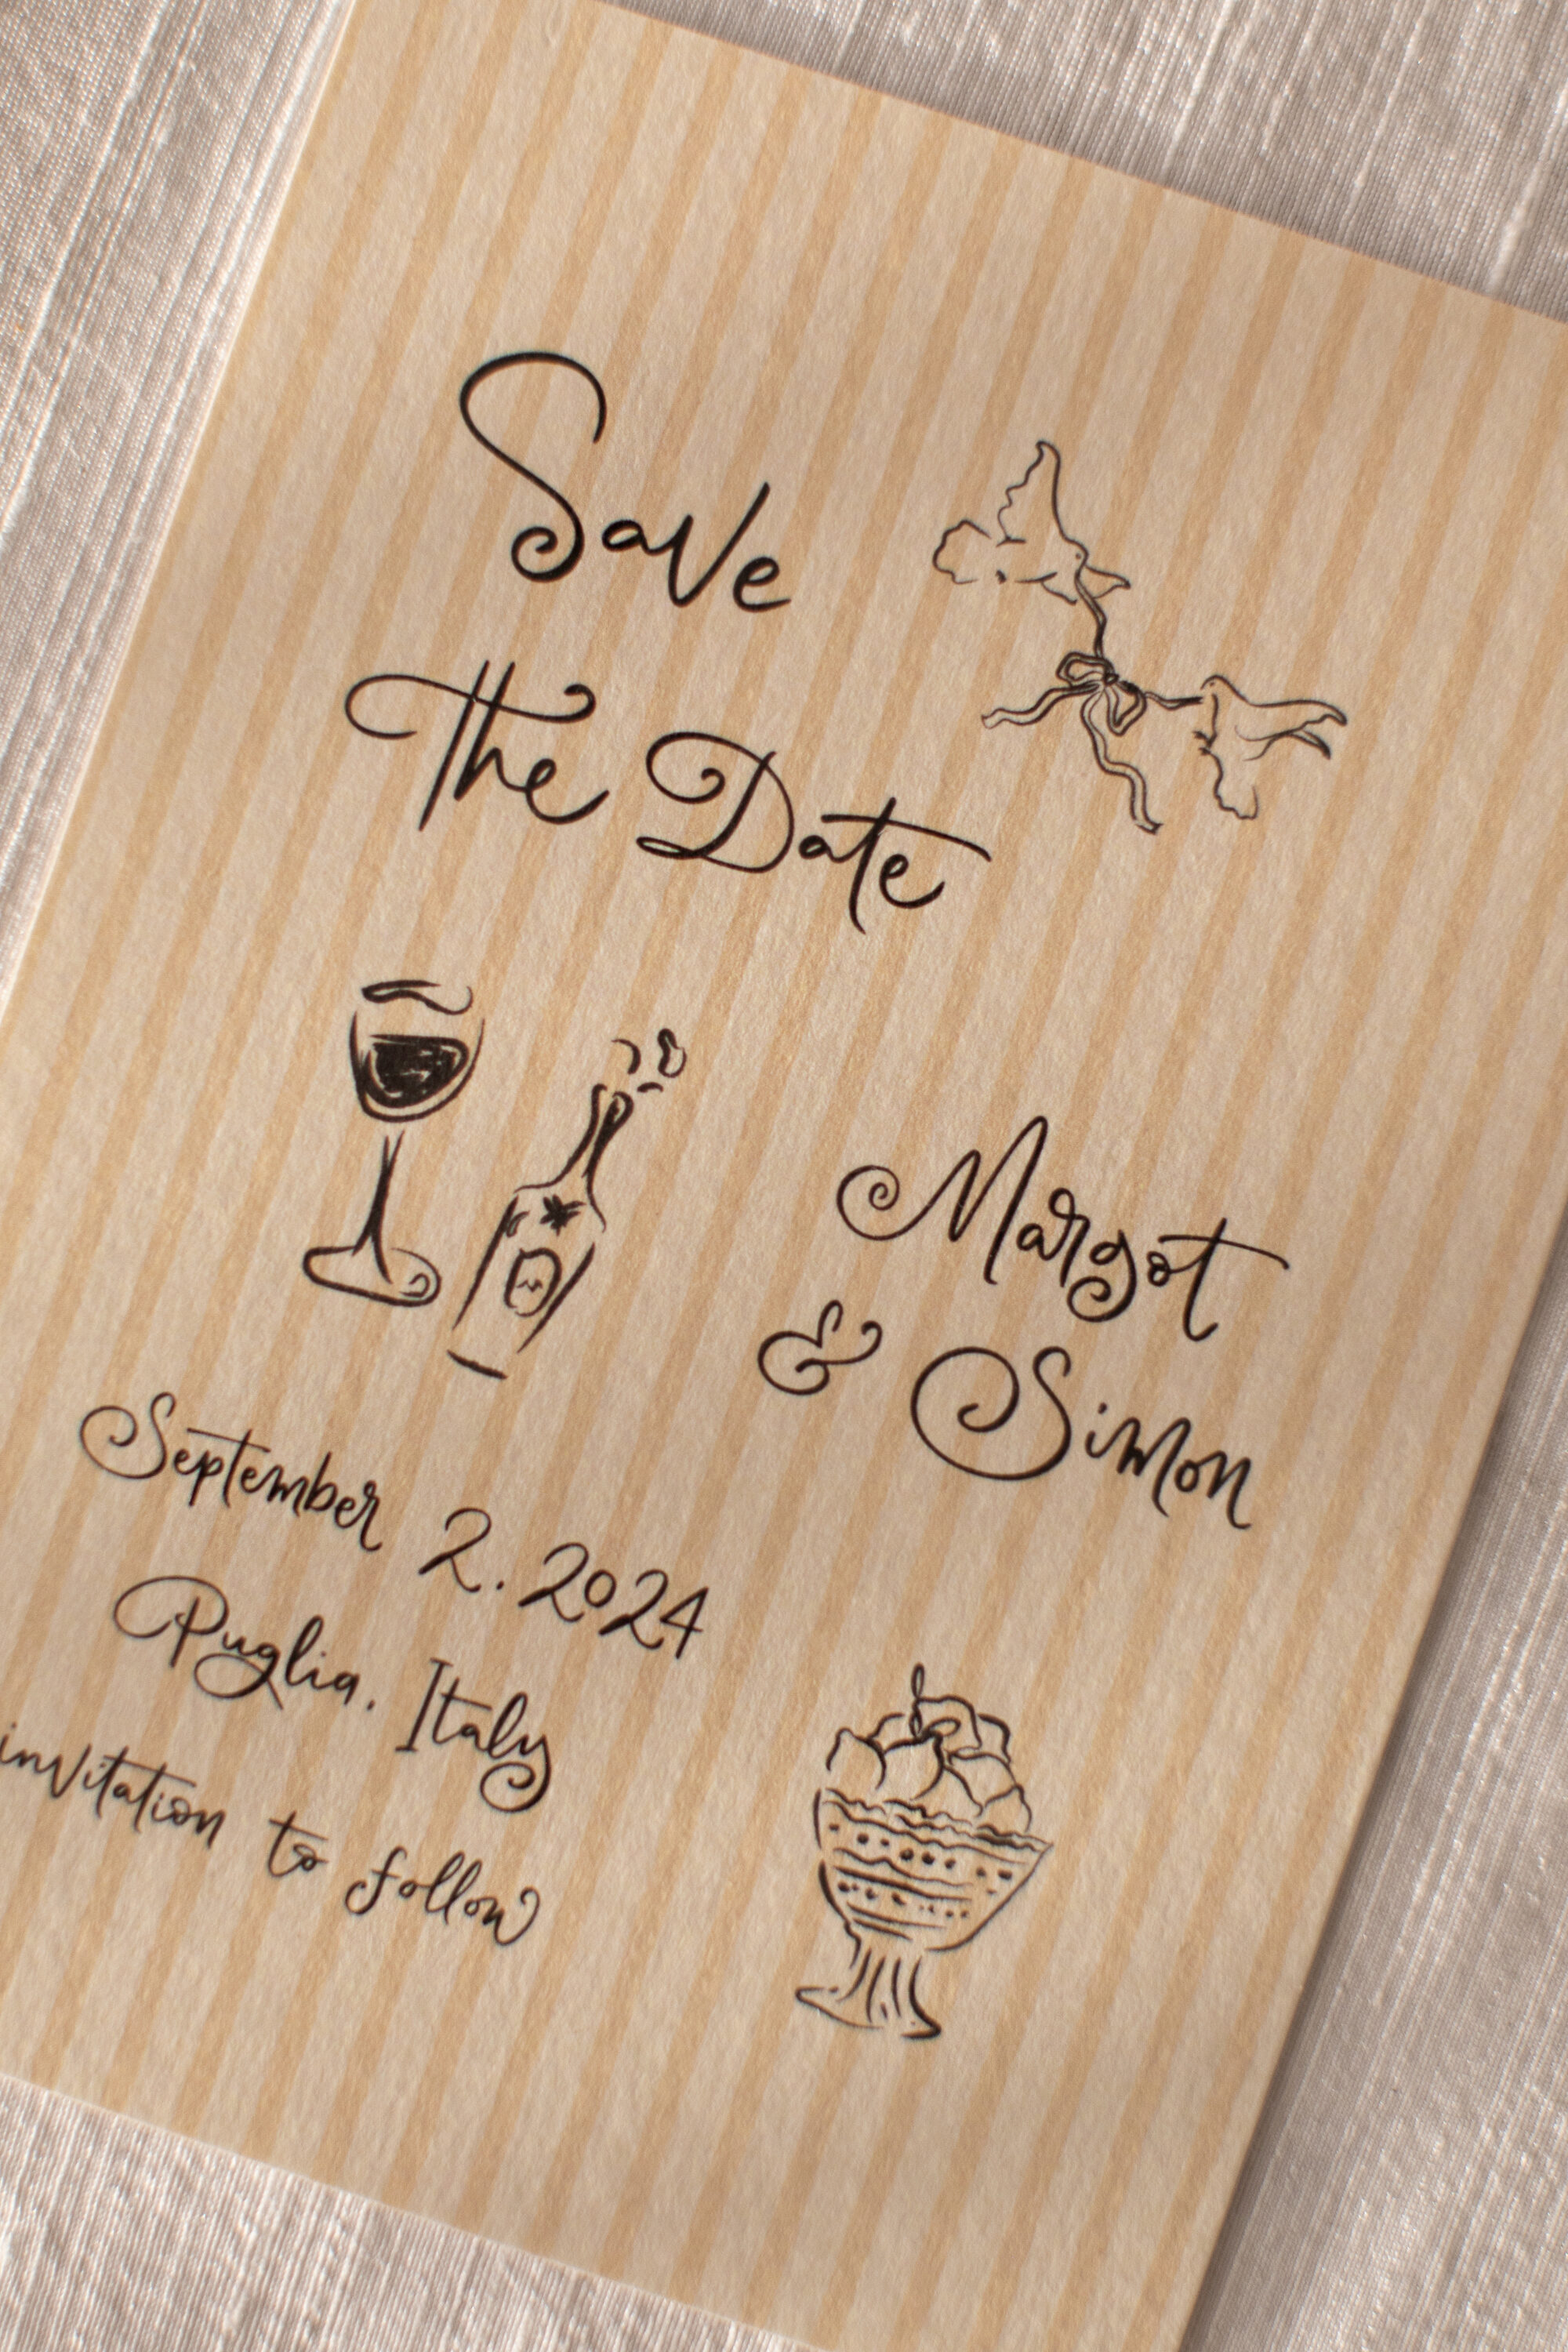 Save
The Date
Margot
& Simon
September 2. 2024
Puglia, Italy
invitation to follow